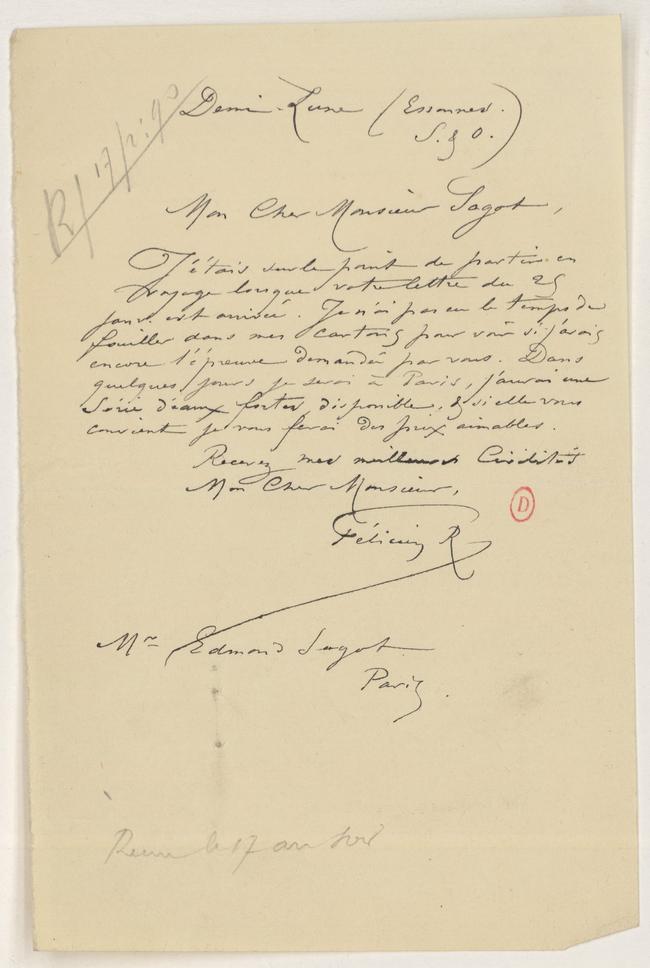 Demi-Lune (Essonnes.
S. & O.)
R/ 17/2: 90
Mon Cher Monsieur Sagot,
J'étais sur le point de partir en
voyage lorsque votre lettre du 25
janv. est arrivée. Je n'ai pas eu le temps de
fouiller dans mes cartons pour voir si j'avais
encore l'épreuve demandée par vous. Dans
quelques jours je serai à Paris, j'aurai une
Série d'eaux fortes, disponible, & si elle vous
convient je vous ferai des prix aimables.
Recevez mes meilleures Civilités
Mon Cher Monsieur,
D
Félicien R
Mr Edmond Sagot
Paris.
le 17 au soir